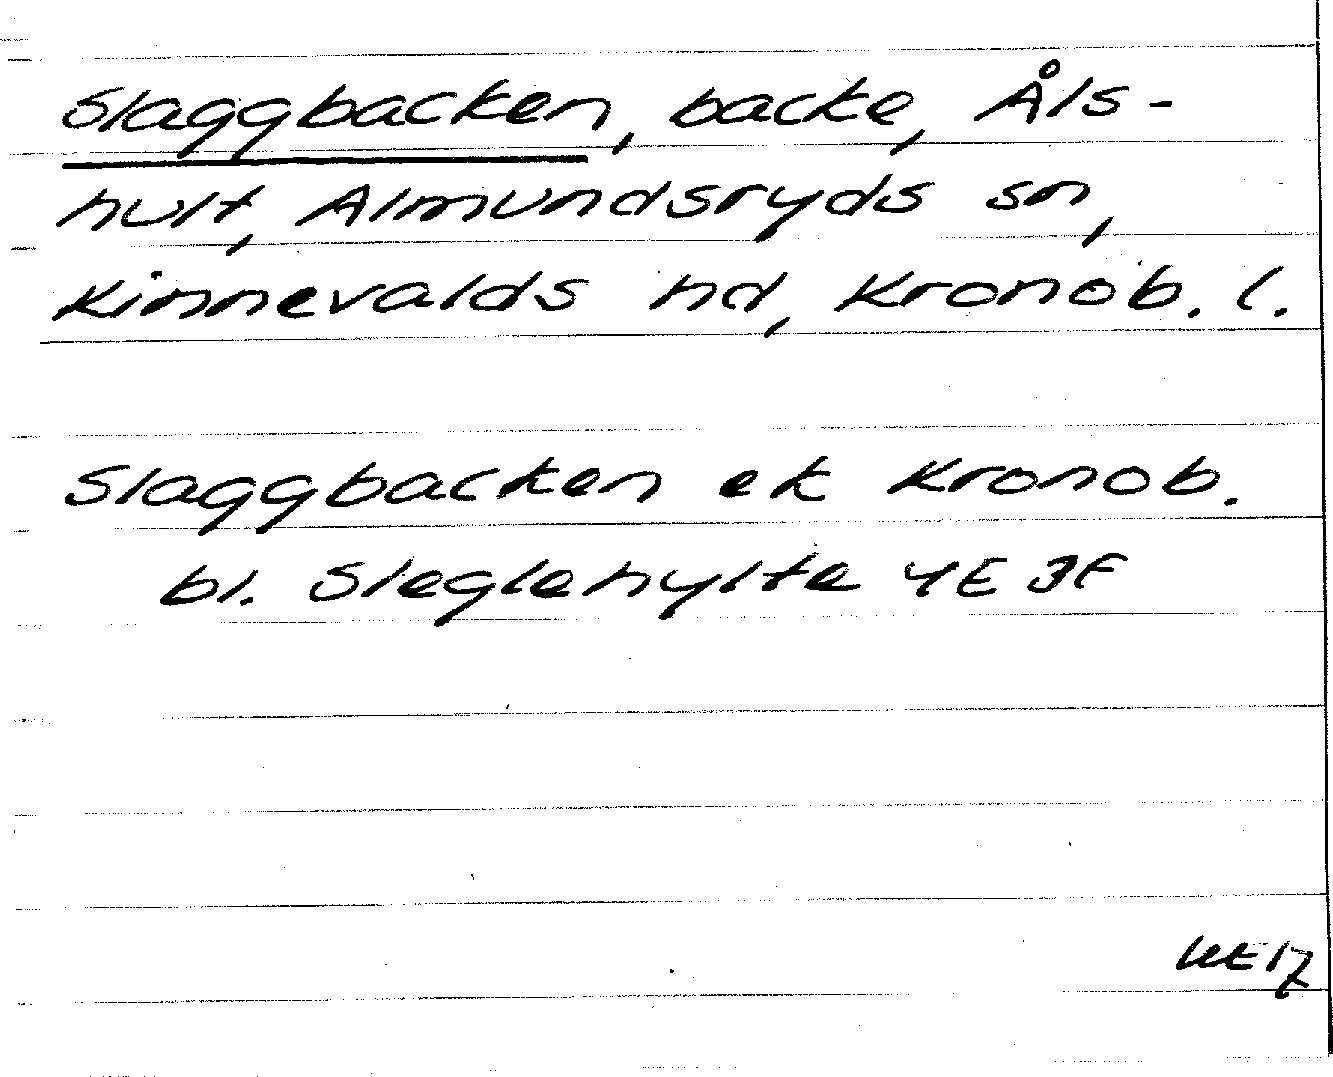 Slaggbacken, backe, Åls-
hult, Almundsryds sn,
Kinnevalds hd, Kronob. l.
Slaggbacken ek Kronob.
bl. Sleglehylte 4E 3F